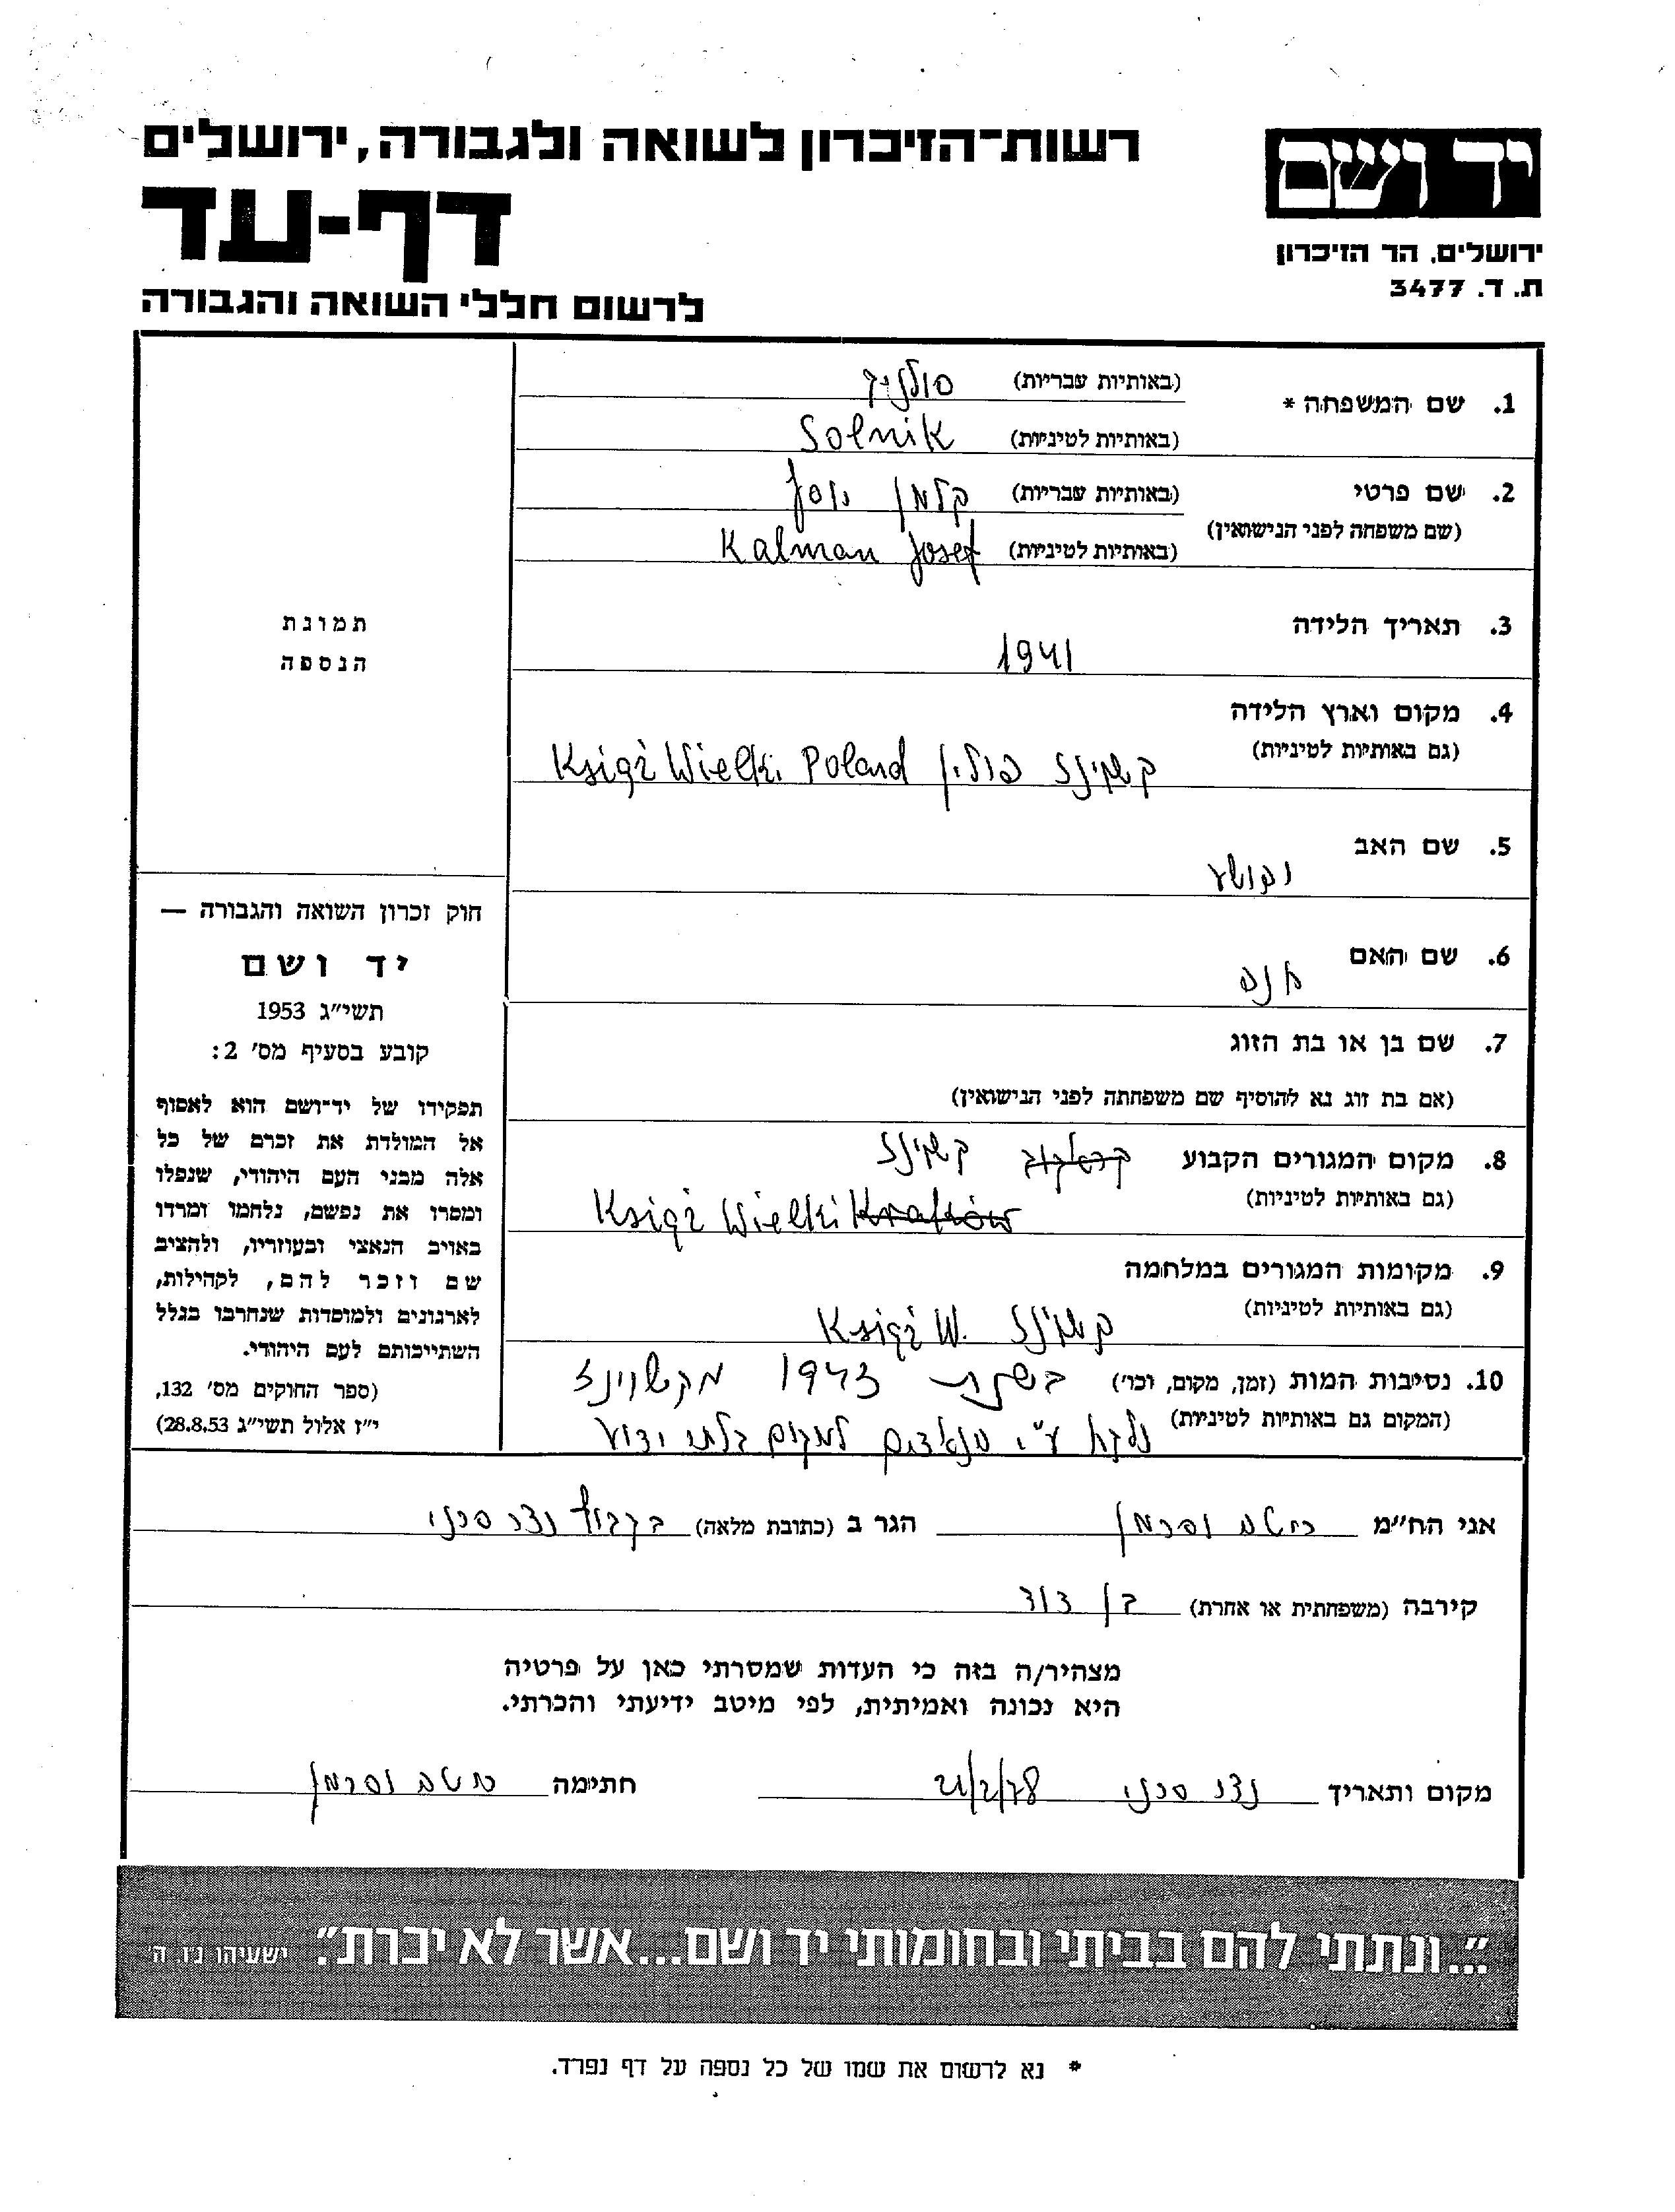 רשות־הזיכרון לשואה ולגבורה, ירושלים
דף-עד
לרשום חללי השואה והגבורה
יד ושם
ירושלים, הר הזיכרון
ת. ד. 3477
1. שם המשפחה * (באותיות עבריות) סולניק
(באותיות לטיניות) Solnik
2. שם פרטי (באותיות עבריות) קלמן יוסף
(שם משפחה לפני הנישואין)
(באותיות לטיניות) Kalman Josef
3. תאריך הלידה 1941
4. מקום וארץ הלידה
(גם באותיות לטיניות) קשוינז פולין Książ Wielki Poland
5. שם האב יהושע
6. שם האם חנה
7. שם בן או בת הזוג
(אם בת זוג נא להוסיף שם משפחתה לפני הנישואין)
8. מקום המגורים הקבוע קראקוב קשוינז
(גם באותיות לטיניות) Książ Wielki Kraków
9. מקומות המגורים במלחמה
(גם באותיות לטיניות) קשוינז Książ W.
10. נסיבות המות (זמן, מקום, וכו') בשנת 1943 מקשוינז
(המקום גם באותיות לטיניות) נלקח ע"י הנאצים למקום בלתי ידוע
תמונת
הנספה
חוק זכרון השואה והגבורה —
יד ושם
תשי״ג 1953
קובע בסעיף מס׳ 2:
תפקידו של יד־ושם הוא לאסוף
אל המולדת את זכרם של כל
אלה מבני העם היהודי, שנפלו
ומסרו את נפשם, נלחמו ומרדו
באויב הנאצי ובעוזריו, ולהציב
שם וזכר להם, לקהילות,
לארגונים ולמוסדות שנחרבו בגלל
השתייכותם לעם היהודי.
(ספר החוקים מס׳ 132,
י״ז אלול תשי״ג 28.8.53)
אני הח״מ הגר ב (כתובת מלאה) בקבוץ נצר סרני
קירבה (משפחתית או אחרת) בן דוד
מצהיר/ה בזה כי העדות שמסרתי כאן על פרטיה
היא נכונה ואמיתית, לפי מיטב ידיעתי והכרתי.
מקום ותאריך נצר סרני 21/2/78 חתימה
"...ונתתי להם בביתי ובחומותי יד ושם...אשר לא יכרת". ישעיהו נ״ו, ה׳
* נא לרשום את שמו של כל נספה על דף נפרד.